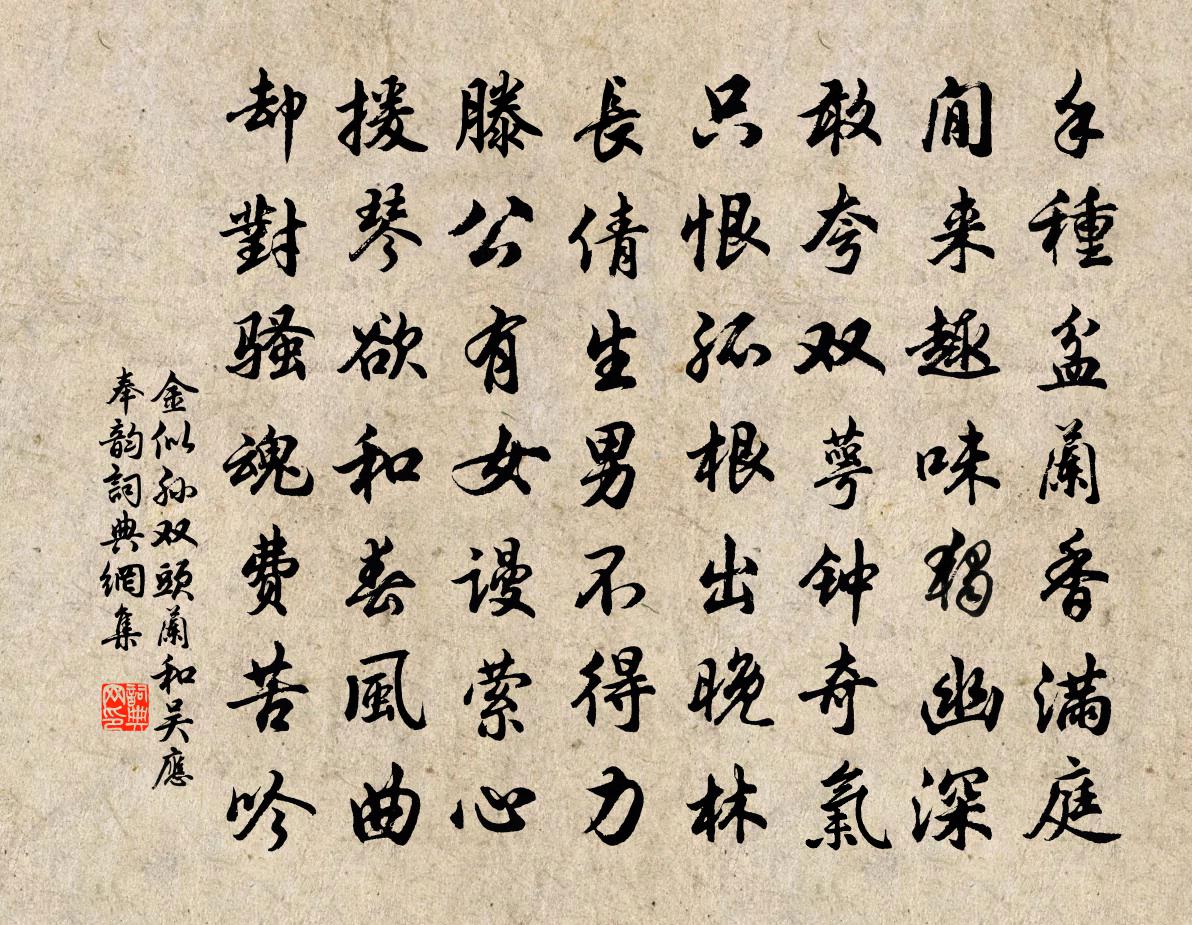 手種盆蘭香满庭
閒来趣味獨幽深
敢夸双萼钟奇氣
只恨孤根出晚林
長倩生男不得力
滕公有女謾萦心
援琴欲和春風曲
却對騷魂費苦吟
金似孙双頭蘭和吴應
奉韵詞典網集
詞典网印